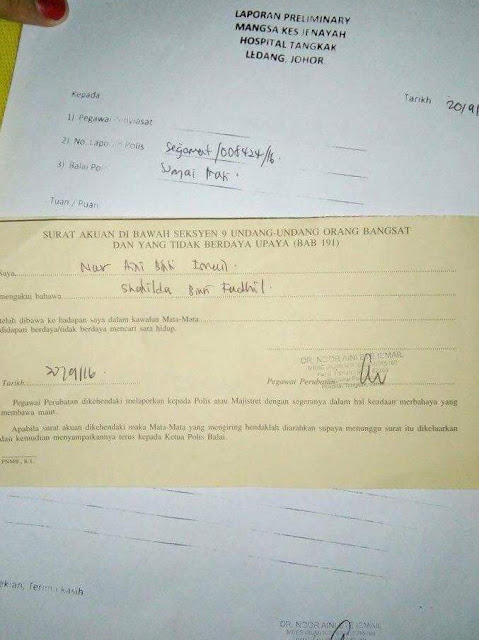 LAPORAN PRELIMINARY
MANGSA KES JENAYAH
HOSPITAL TANGKAK
LEDANG, JOHOR
Tarikh 20/9/
Kepada
1) Pegawai Penyiasat
2) No. Laporan Polis Segamat/008424/16.
3) Balai Polis
Tuan / Puan
SURAT AKUAN DI BAWAH SEKSYEN 9 UNDANG-UNDANG ORANG BANGSAT
DAN YANG TIDAK BERDAYA UPAYA (BAB 191)
Saya
mengakui bahawa
telah dibawa ke hadapan saya dalam kawalan Mata-Mata
didapati berdaya/tidak berdaya mencari sara hidup.
DR. NOOR AINI
Tarikh 20/9/16. Pegawai Perubatan
Pegawai Perubatan dikehendaki melaporkan kepada Polis atau Majistret dengan segeranya dalam hal keadaan merbahaya yang
membawa maut.
Apabila surat akuan dikehendaki maka Mata-Mata yang mengiring hendaklah diarahkan supaya menunggu surat itu dikeluarkan
dan kemudian menyampaikannya terus kepada Ketua Polis Balai.
PNMB., K.L.
ekian, Terima kasih
DR. NOOR AINI